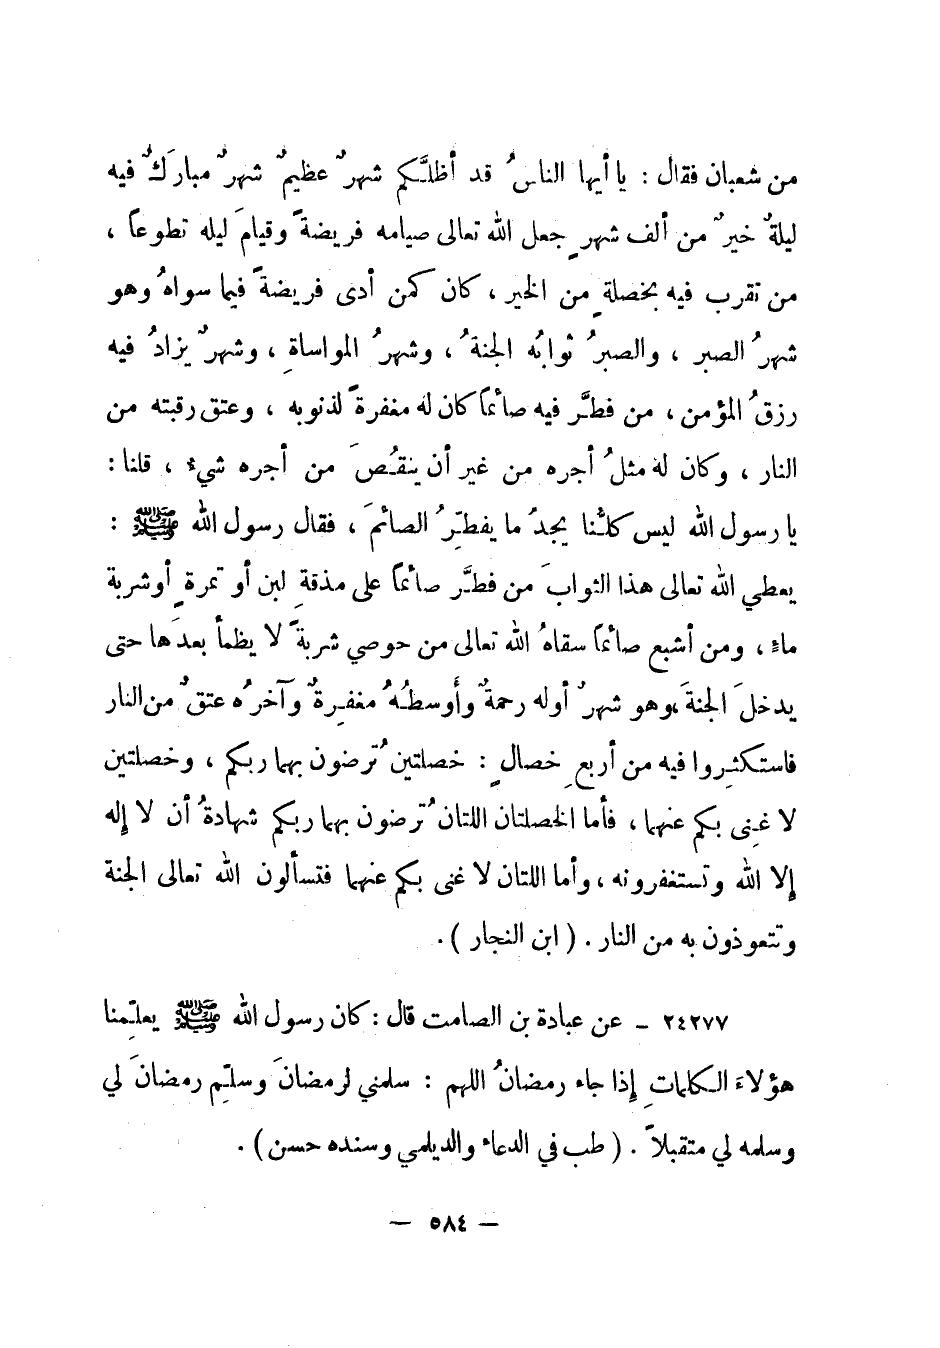 من شعبان فقال : يا أيها الناسُ قد أظلَّكم شهرٌ عظيمٌ شهرٌ مباركٌ فيه
ليلةٌ خيرٌ من ألف شهرٍ جعل الله تعالى صيامه فريضةً وقيامَ ليله تطوعاً ،
من تقرب فيه بخصلةٍ من الخير ، كان كمن أدى فريضةً فيما سواهُ وهو
شهرُ الصبر ، والصبرُ ثوابُه الجنةُ ، وشهرُ المواساةِ ، وشهرٌ يزادُ فيه
رزقُ المؤمن ، من فطَّر فيه صائماً كان له مغفرةً لذنوبه ، وعتق رقبته من
النار ، وكان له مثلُ أجره من غير أن ينقُصَ من أجره شيء ، قلنا :
يا رسول الله ليس كلُّنا يجدُ ما يفطِّرُ الصائمَ ، فقال رسول الله ﷺ :
يعطي الله تعالى هذا الثوابَ من فطَّر صائماً على مذقةِ لبن أو تمرةٍ أو شربة
ماء ، ومن أشبع صائماً سقاهُ الله تعالى من حوصي شربةً لا يظمأ بعدَها حتى
يدخلَ الجنةَ ،وهو شهرٌ أوله رحمةٌ وأَوسطُهُ مغفرةٌ وآخرُه عتقٌ من النار
فاستكثِروا فيه من أربعِ خصالٍ : خصلتين تُرضون بهما ربكم ، وخصلتين
لا غِنى بكم عنهما ، فأما الخصلتان اللتان تُرضون بهما ربكم شهادةُ أن لا إله
إلا الله وتستغفرونه ، وأما اللتان لا غنى بكم عنهما فتسألون الله تعالى الجنة
وتتعوذون به من النار . ( ابن النجار ) .
٢٤٢٧٧ - عن عبادة بن الصامت قال : كان رسول الله ﷺ يعلِّمنا
هؤلاءَ الكلماتِ إذا جاء رمضانُ اللهم : سلمني لرمضانَ وسلِّم رمضانَ لي
وسلمه لي متقبلاً . ( طب في الدعاء والديلمي وسنده حسن ) .
— ٥٨٤ —